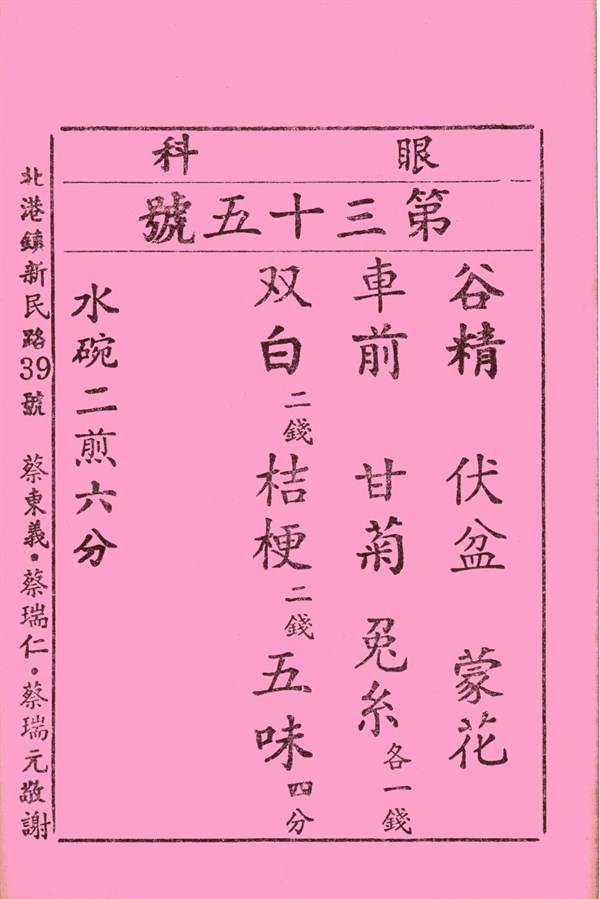 眼科
第三十五號
谷精 伏盆 蒙花
車前 甘菊 兎糸各一錢
双白二錢 桔梗二錢 五味四分
水碗二煎六分
北港鎮新民路39號 蔡東義・蔡瑞仁・蔡瑞元敬謝